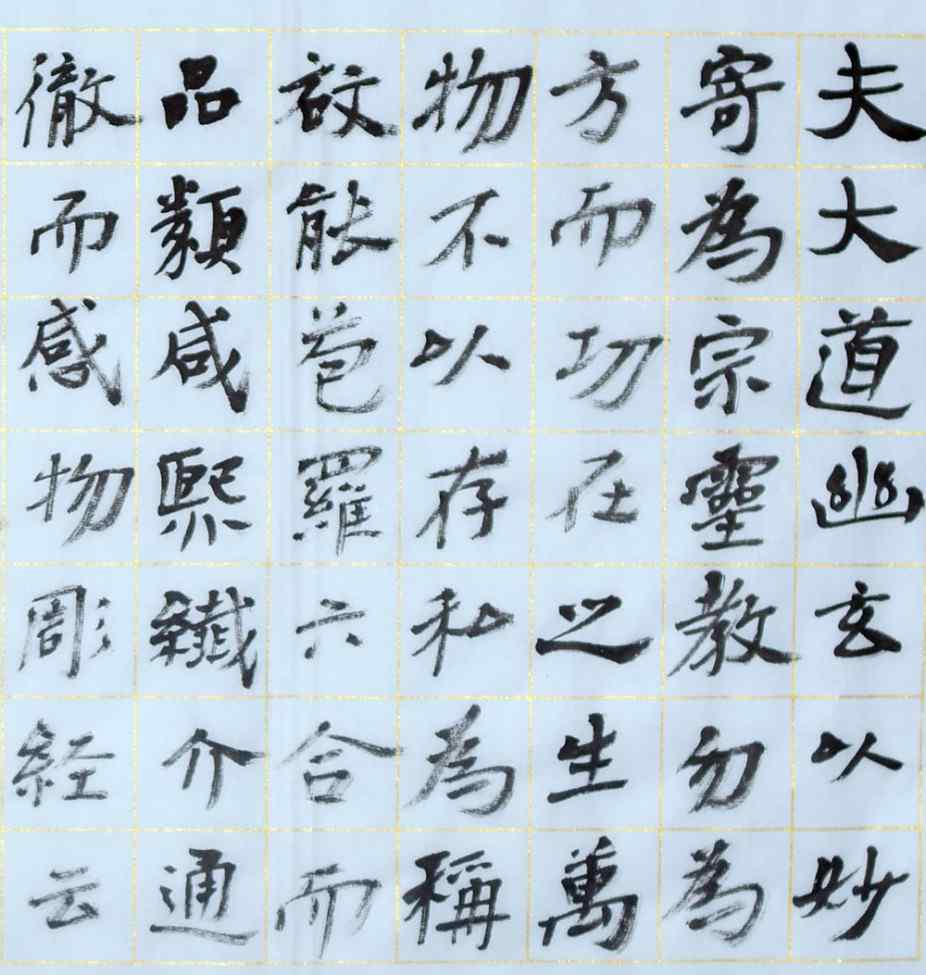 夫大道幽玄以妙
寄為宗靈教勿為
方而功在之生萬
物不以存私為稱
故能苞羅六合而
品類咸熙纖介通
徹而感物彫経云